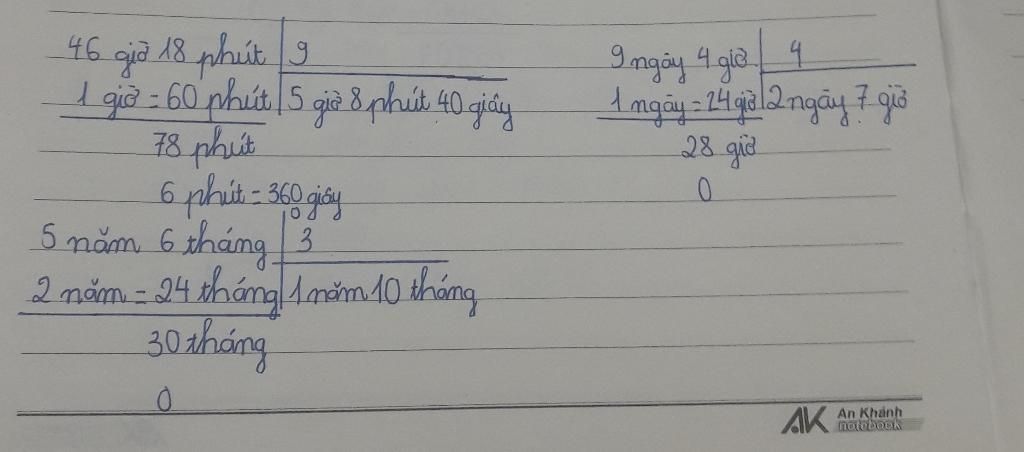 46 giờ 18 phút 9
1 giờ = 60 phút 5 giờ 8 phút 40 giây
78 phút
6 phút = 360 giây
0
9 ngày 4 giờ 4
1 ngày = 24 giờ 2 ngày 7 giờ
28 giờ
0
5 năm 6 tháng 3
2 năm = 24 tháng 1 năm 10 tháng
30 tháng
0
AK An Khánh
notebook